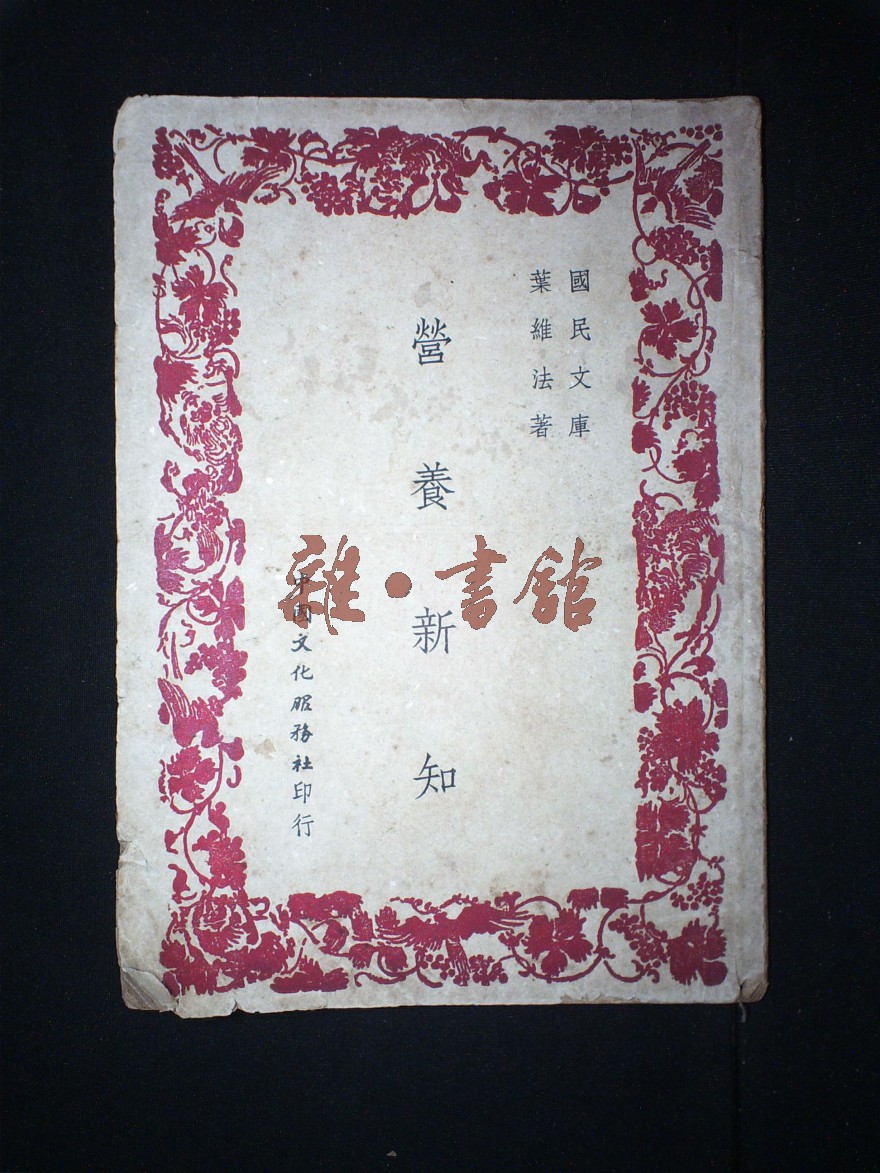 國民文庫
葉維法著
營養新知
中國文化服務社印行
雜·書館